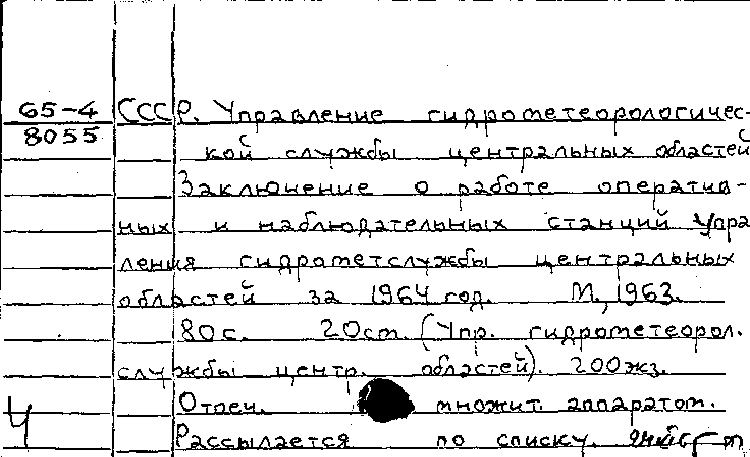 65-4 СССР. Управление гидрометеорологичес-
8055
кой службы центральных областей
Заключение о работе оператив-
ных и наблюдательных станций Упра
ления гидрометслужбы центральных
областей за 1964 год. М., 1963.
80с. 20см. (Упр. гидрометеорол.
службы центр. областей). 200жз.
Отпеч. множит. аппаратом.
Ч
Рассылается по списку.